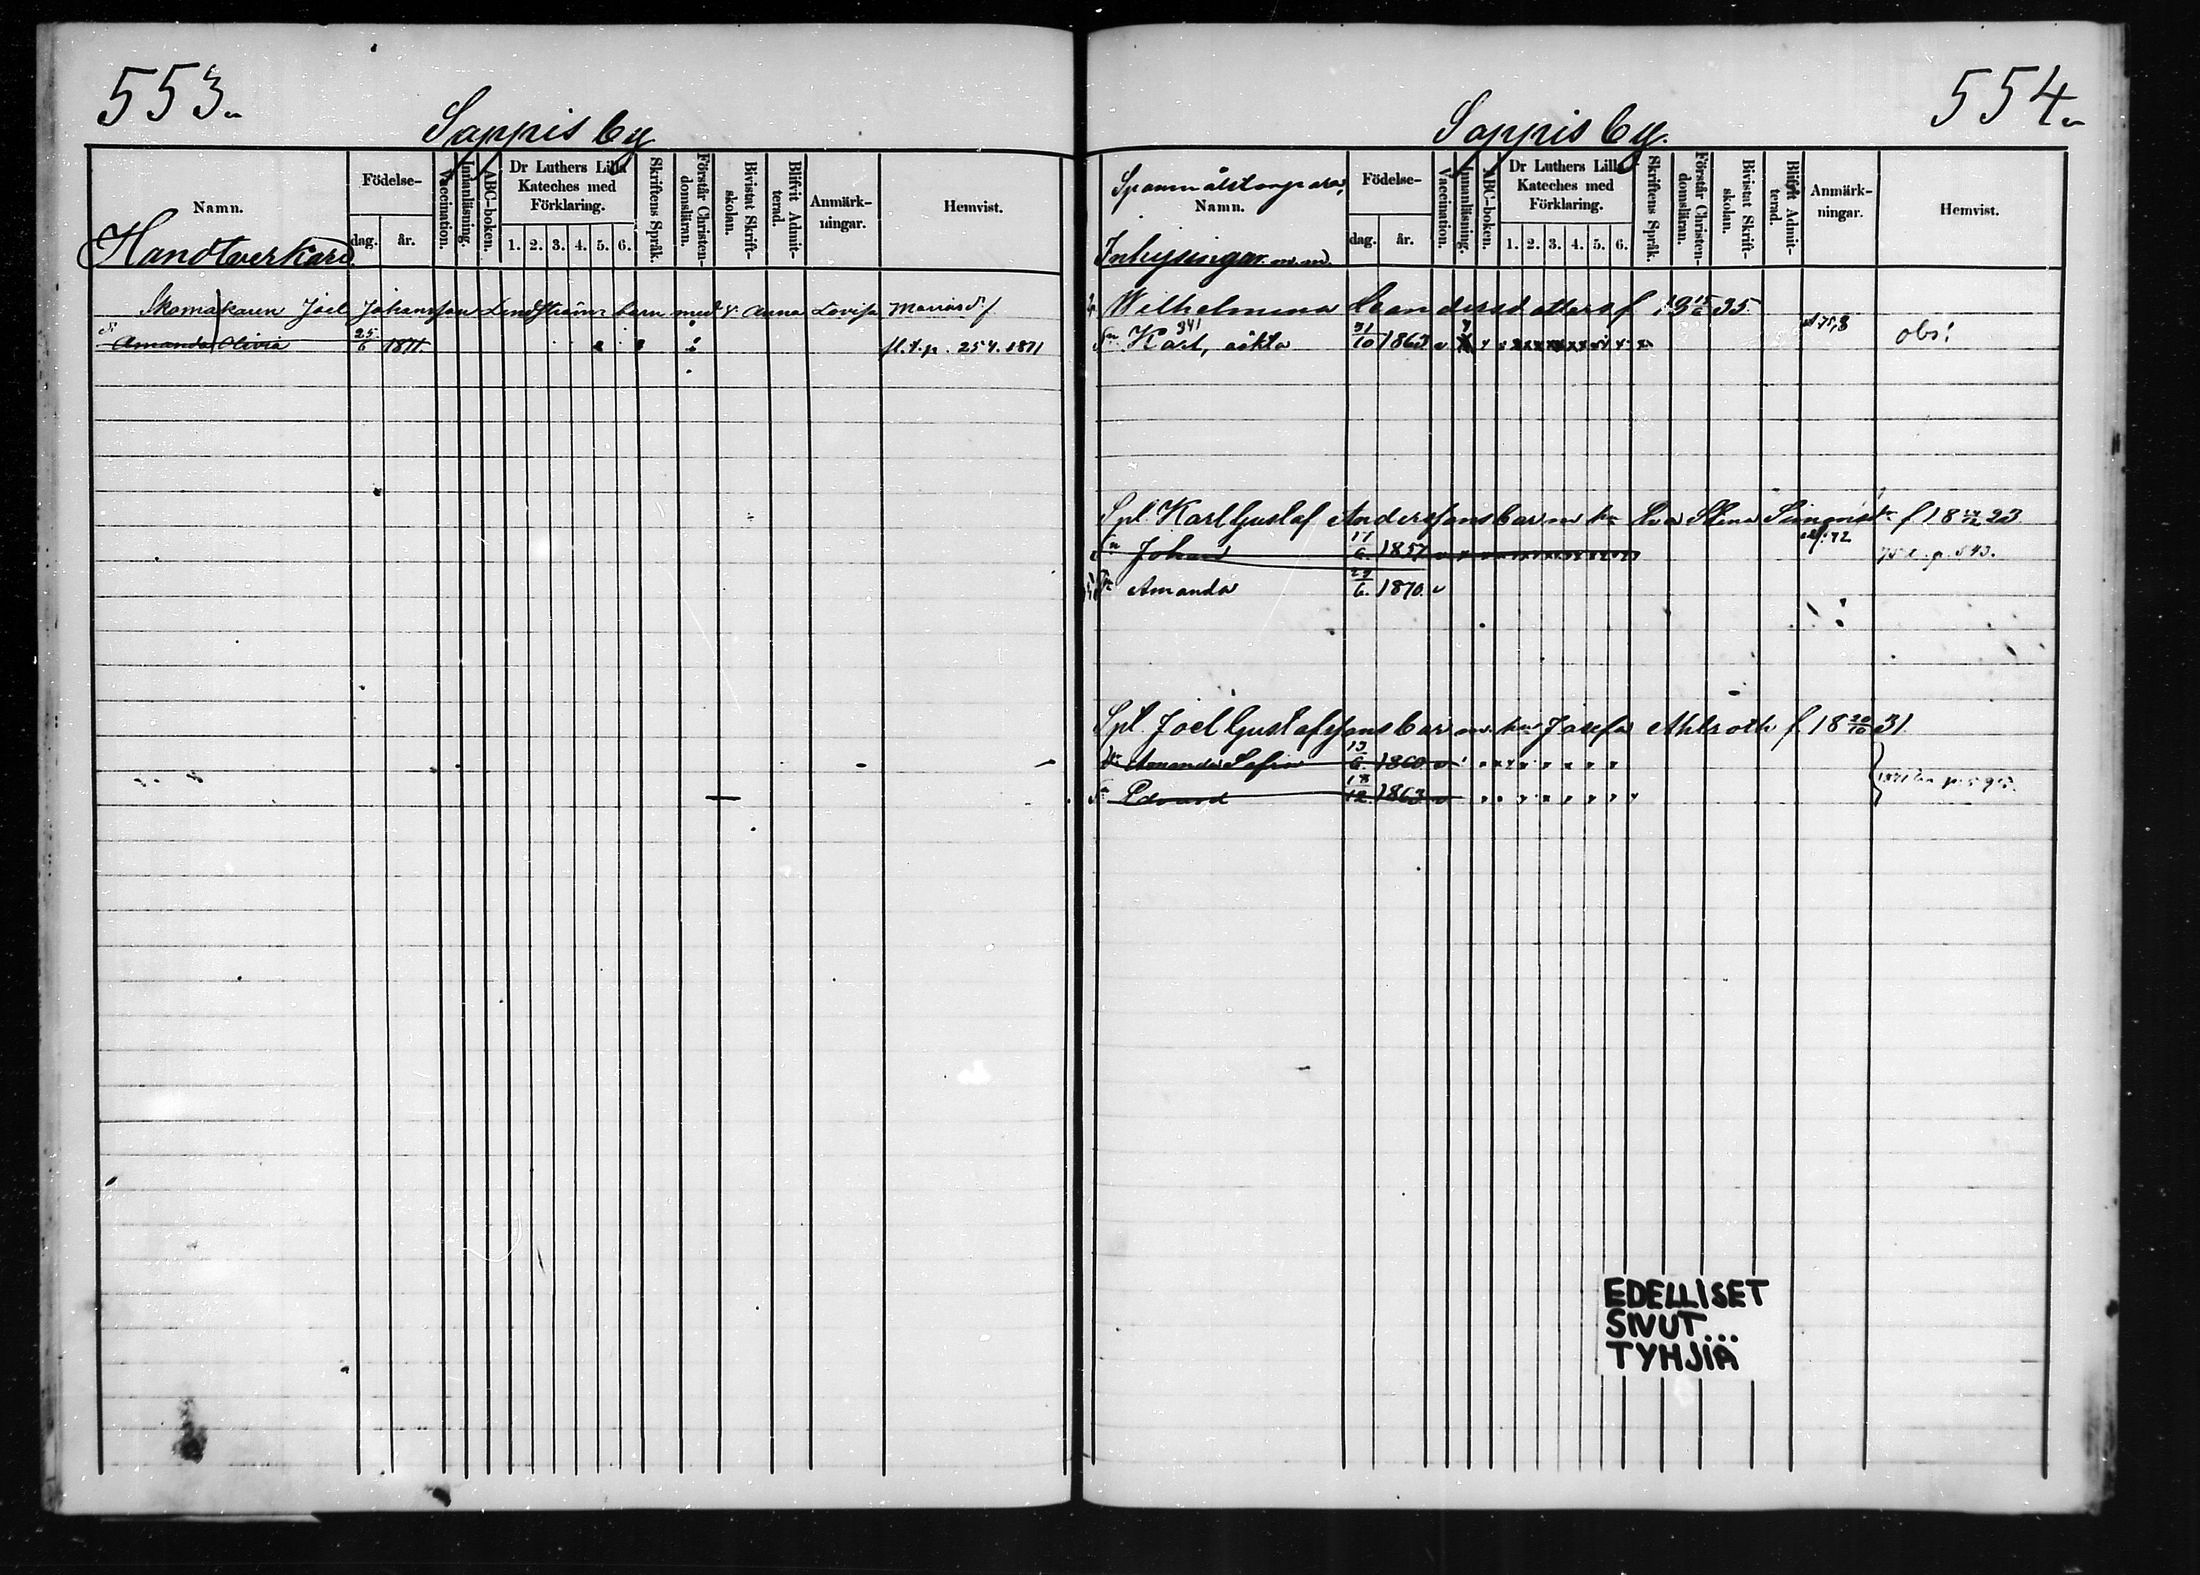 553.
Sappis by
Namn.
Födelse-
dag.
år.
Vaccination.
Innanläsning.
ABC-boken.
Dr Luthers Lilla
Kateches med
Förklaring.
1. 2. 3. 4. 5. 6.
Skriftens Språk.
Förstår Christen-
domsläran.
Bivistat Skrift-
skolan.
Blifvit Admit-
terad.
Anmärk-
ningar.
Hemvist.
Handtverkare
Skomakaren Joel Johansson Lindström barn med h. Anna Lovisa Mariasd. f.
Amanda Olivia 25/6 1871. fl. t. p. 254. 1871
554.
Sappis by.
Spanmålstorpare,
Namn.
Inhysingar m.m.
Födelse-
dag.
år.
Vaccination.
Innanläsning.
ABC-boken.
Dr Luthers Lilla
Kateches med
Förklaring.
1. 2. 3. 4. 5. 6.
Skriftens Språk.
Förstår Christen-
domsläran.
Bivistat Skrift-
skolan.
Blifvit Admit-
terad.
Anmärk-
ningar.
Hemvist.
Wilhelmina Leandersdotter f.
Sn Karl, äkta 31/10 1863 obs!
341
Spl. Karl Gustaf Anderssons barn m. hu Eva Stina f 18 23
Sn Johan 17/6. 1857 p. 543.
Dr Amanda 29/6. 1870.
Spl. Joel Gustafssons barn m. hu Josefa Ahlroth f. 18 20/10 31.
Dr Amanda Sofia 13/6. 1860
Sn Edvard 18/12. 1863
EDELLISET
SIVUT...
TYHJIÄ